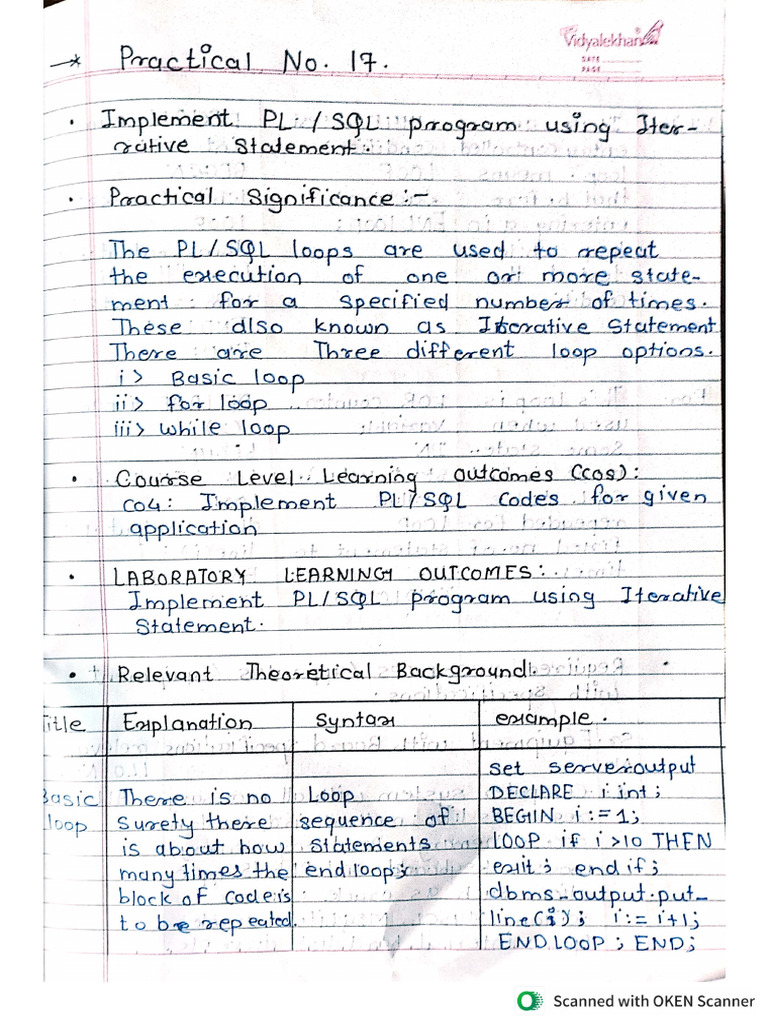 Vidyalekhan
DATE
PAGE
→* Practical No. 17.
• Implement PL/SQL program using Iter-
rative Statement.
• Practical Significance :-
The PL/SQL loops are used to repeat
the execution of one or more state-
ment for a specified number of times.
These also known as Iterative Statement
There are Three different loop options.
i> Basic loop
ii> for loop
iii> while loop
• Course Level Learning outcomes (cos):
CO4: Implement PL/SQL Codes for given
application
• LABORATORY LEARNING OUTCOMES:
Implement PL/SQL program using Iterative
Statement.
• Relevant Theoretical Background
Title Explanation Syntax example.
Basic
loop
There is no
Surety there
is about how
many times the
block of code is
to be repeated.
Loop
sequence of
Statements
end loop;
set serveroutput
DECLARE i int;
BEGIN i:=1;
LOOP if i>10 THEN
exit; end if;
dbms_output.put_
line(i); i:=i+1;
END LOOP; END;
Scanned with OKEN Scanner